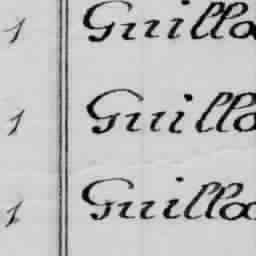 1 Guillo
1 Guillo
1 Guilloo